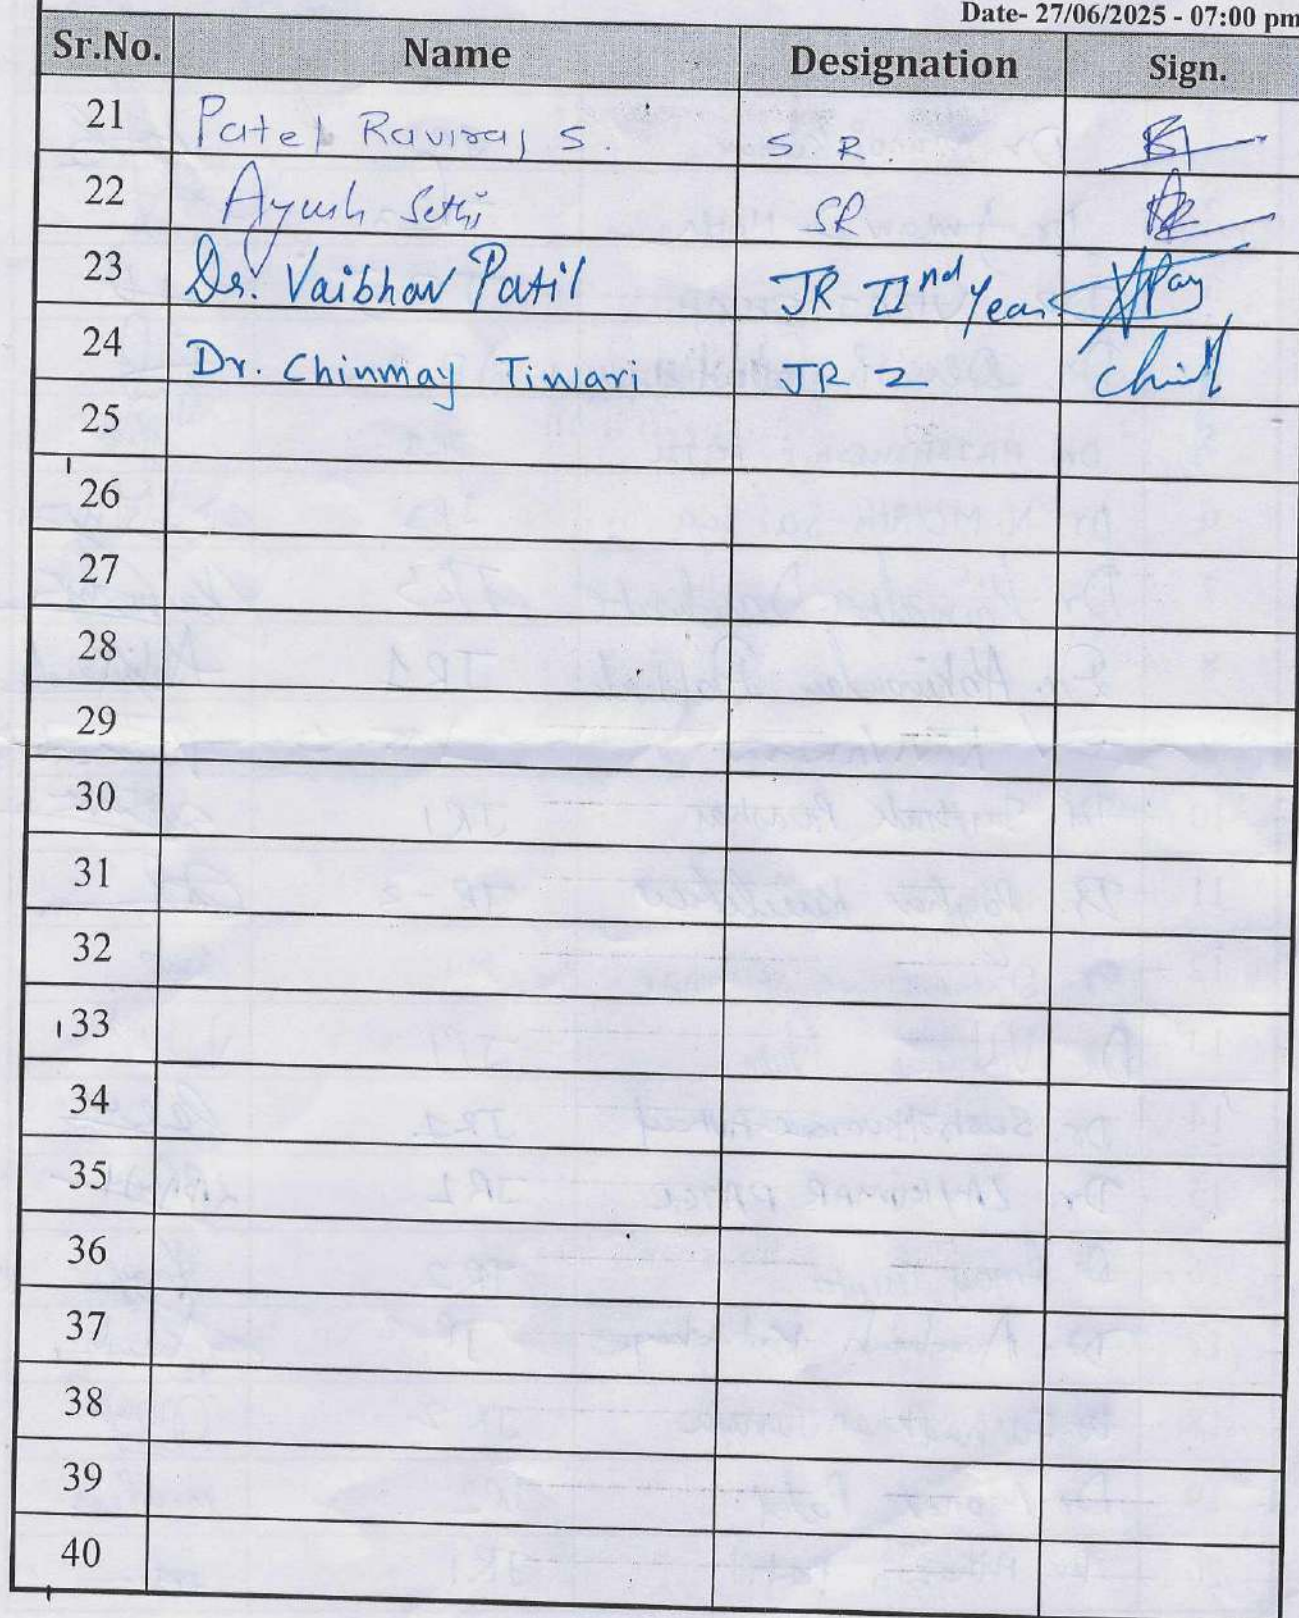 Date- 27/06/2025 - 07:00 pm
Sr.No. Name Designation Sign.
21 Patel Raviraj S. S. R.
22 Ayush Sethi SR
23 Dr. Vaibhav Patil JR IInd Year
24 Dr. Chinmay Tiwari JR 2
25
26
27
28
29
30
31
32
33
34
35
36
37
38
39
40